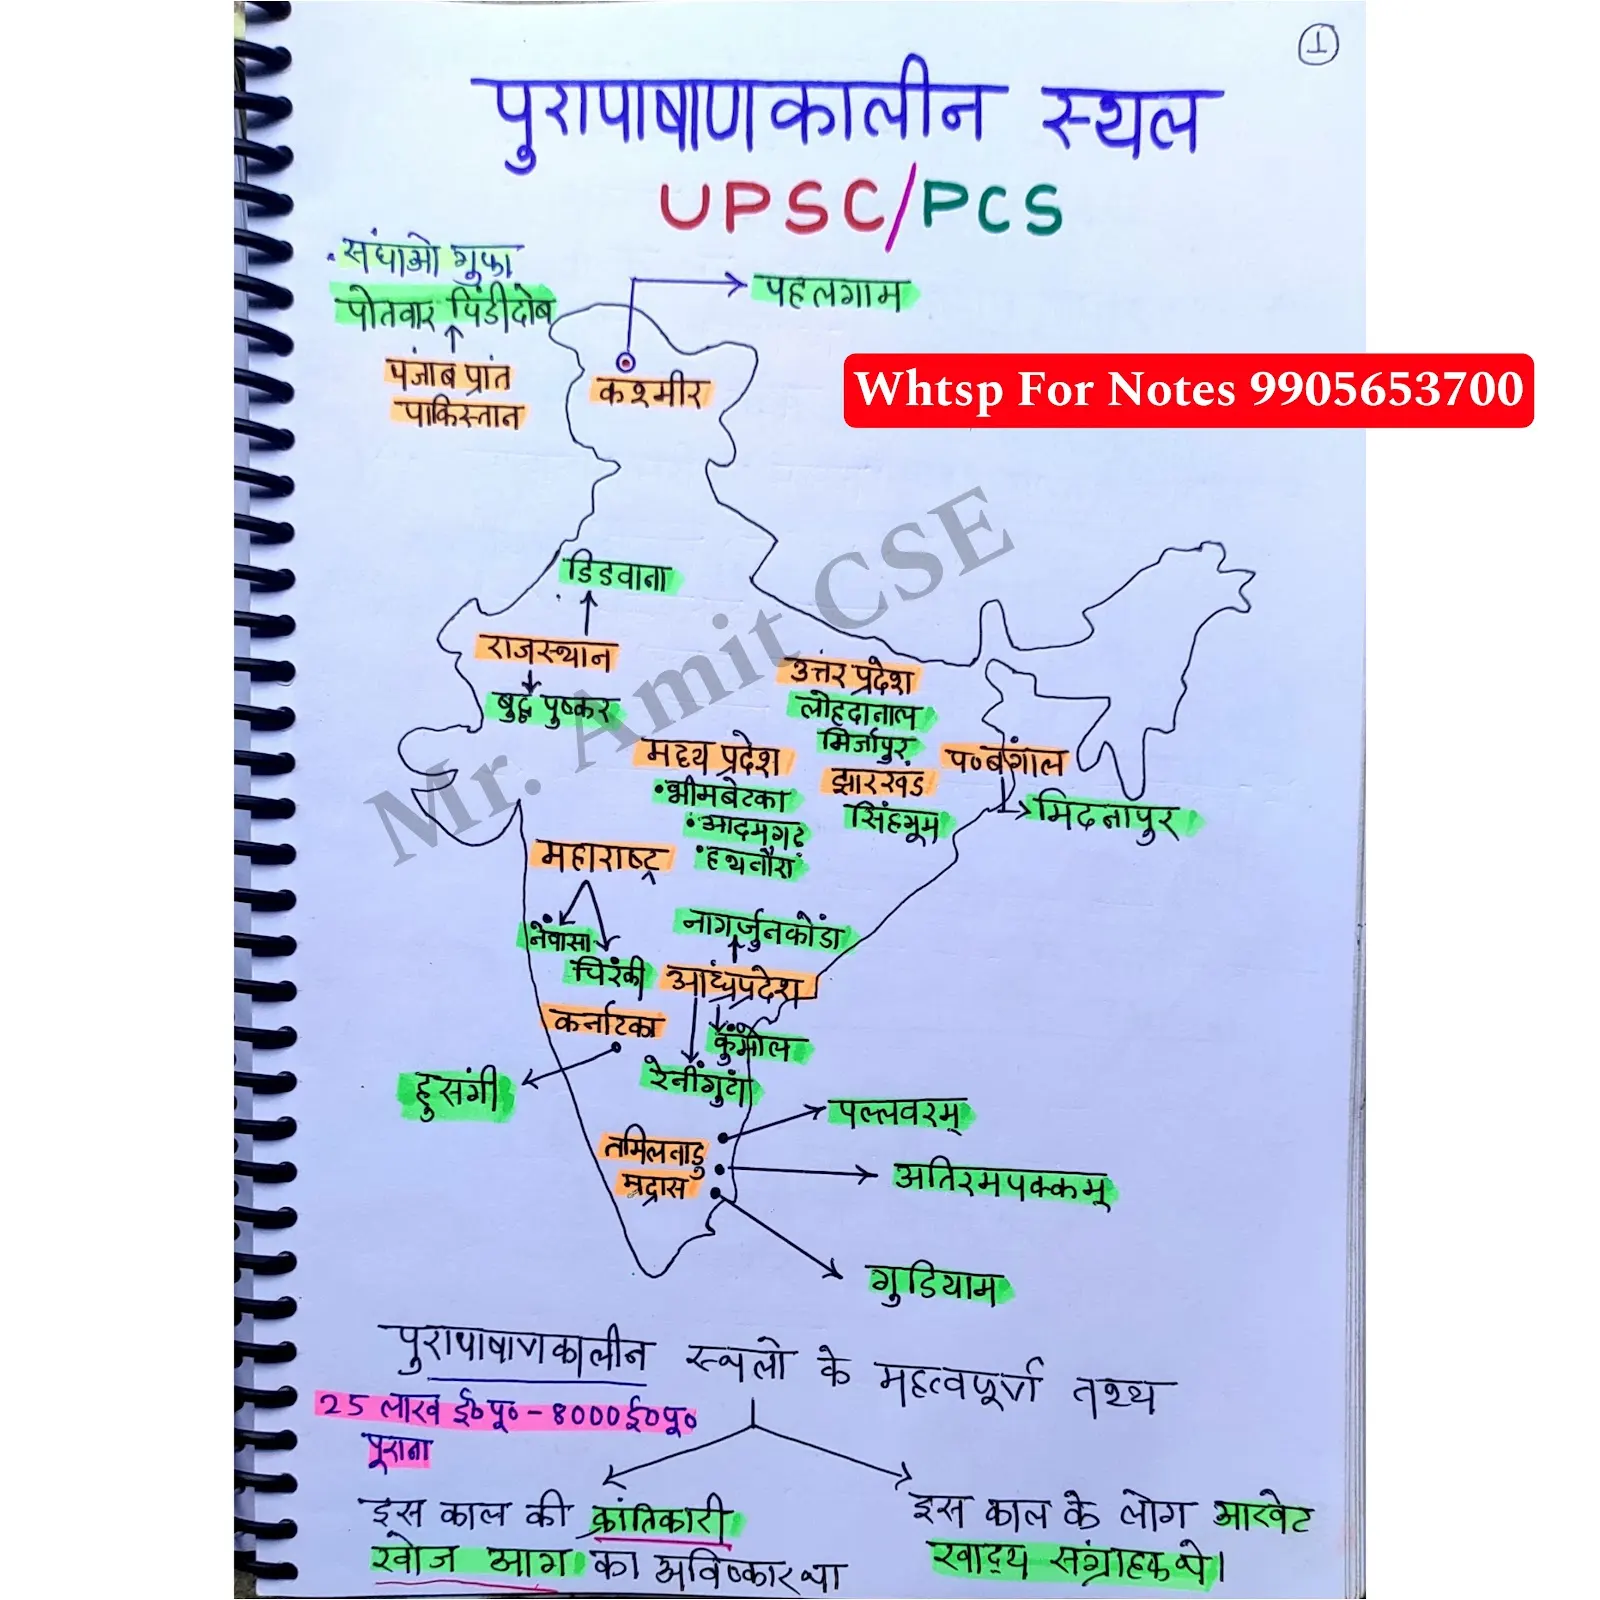 1
पुरापाषाणकालीन स्थल
UPSC/PCS
संघाओ गुफा
पोतवार पिंडीदोब
पंजाब प्रांत
पाकिस्तान
पहलगाम
कश्मीर
Whtsp For Notes 9905653700
Mr. Amit CSE
डिडवाना
राजस्थान
बुद्ध पुष्कर
उत्तर प्रदेश
लोहदानाल
मिर्जापुर
झारखंड
सिंहभूम
प०बंगाल
मिदनापुर
मध्य प्रदेश
•भीमबेटका
•आदमगढ़
•हथनौरा
महाराष्ट्र
नेवासा
चिरंकी
नागर्जुनकोंडा
आंध्रप्रदेश
रेनींगुंटा
कर्नाटका
हुसंगी
तमिलनाडु
मद्रास
पल्लवरम्
अतिरमपक्कम्
गुडियाम
पुरापाषाणकालीन स्थलो के महत्वपूर्ण तथ्य
25 लाख ई०पू० - 8000ई०पू०
पूराना
इस काल की क्रांतिकारी
खोज आग का अविष्कार था
इस काल के लोग आखेट
खाद्य संग्राहक थे।